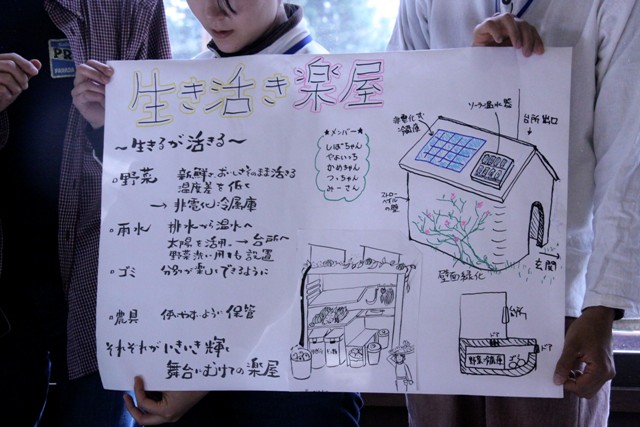 生き活き楽屋
～生きるが活きる～
★メンバー★
しばちゃん
やよいっち
かめちゃん
つっちゃん
みーさん
。野菜 新鮮で、おいしさそのまま活きる
温度差を低く
→ 非電化冷蔵庫
。雨水 排水から温水へ
太陽を活用。→ 台所へ
野菜洗い用も設置
。ゴミ 分別が楽しくできるように
。農具 使いやすいように保管
それぞれがいきいき輝く
舞台にむけての楽屋
ソーラー温水器
非電化
冷蔵庫
台所出口
ストローベイルの壁
玄関
壁面緑化
台所
ドア
ドア
野菜冷蔵庫
PR